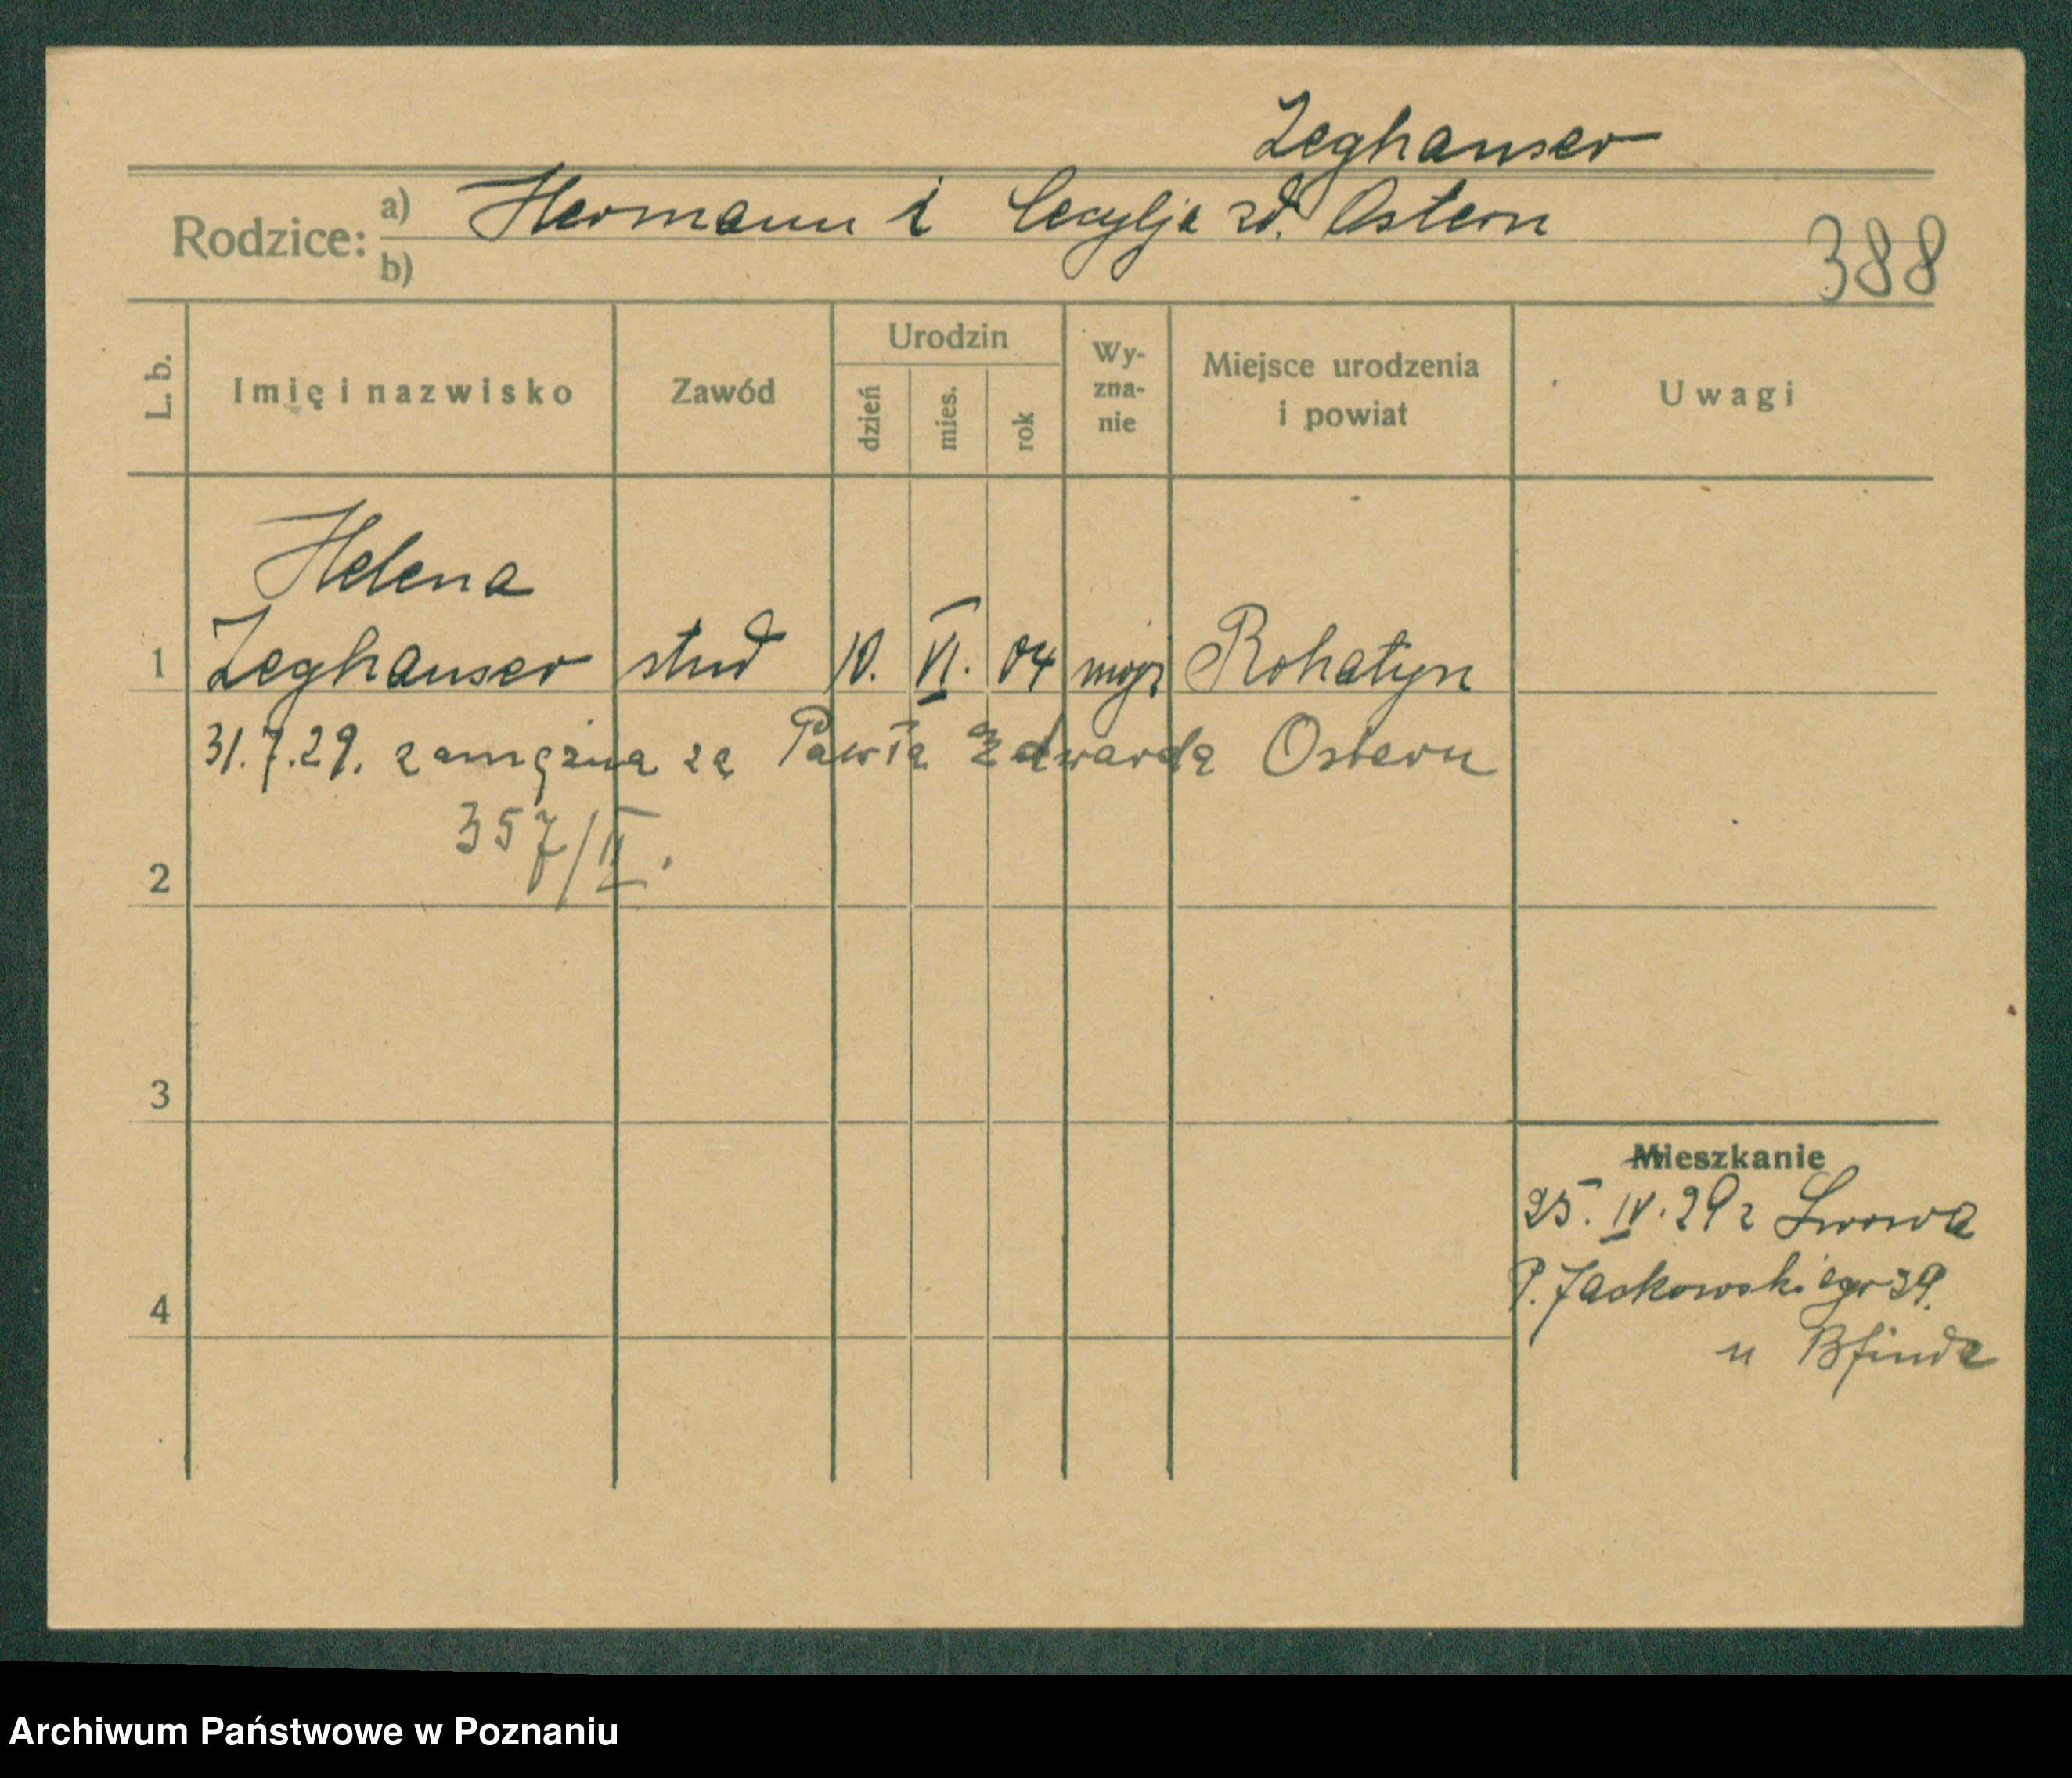 Zeghauser
Rodzice: a) Hermann i Cecylja zd. Ostern
b)
388
L. b. Imię i nazwisko Zawód Urodzin dzień mies. rok Wy-zna-nie Miejsce urodzenia i powiat Uwagi
Helena
1 Zeghauser stud 10. VI. 04 mojż Rohatyn
31.7.29. zamężna za Pawła Edwarda Ostern
357/II.
2
3
Mieszkanie
25. IV. 29 z Lwowa
4 P. Jackowskiego 39.
u
Archiwum Państwowe w Poznaniu